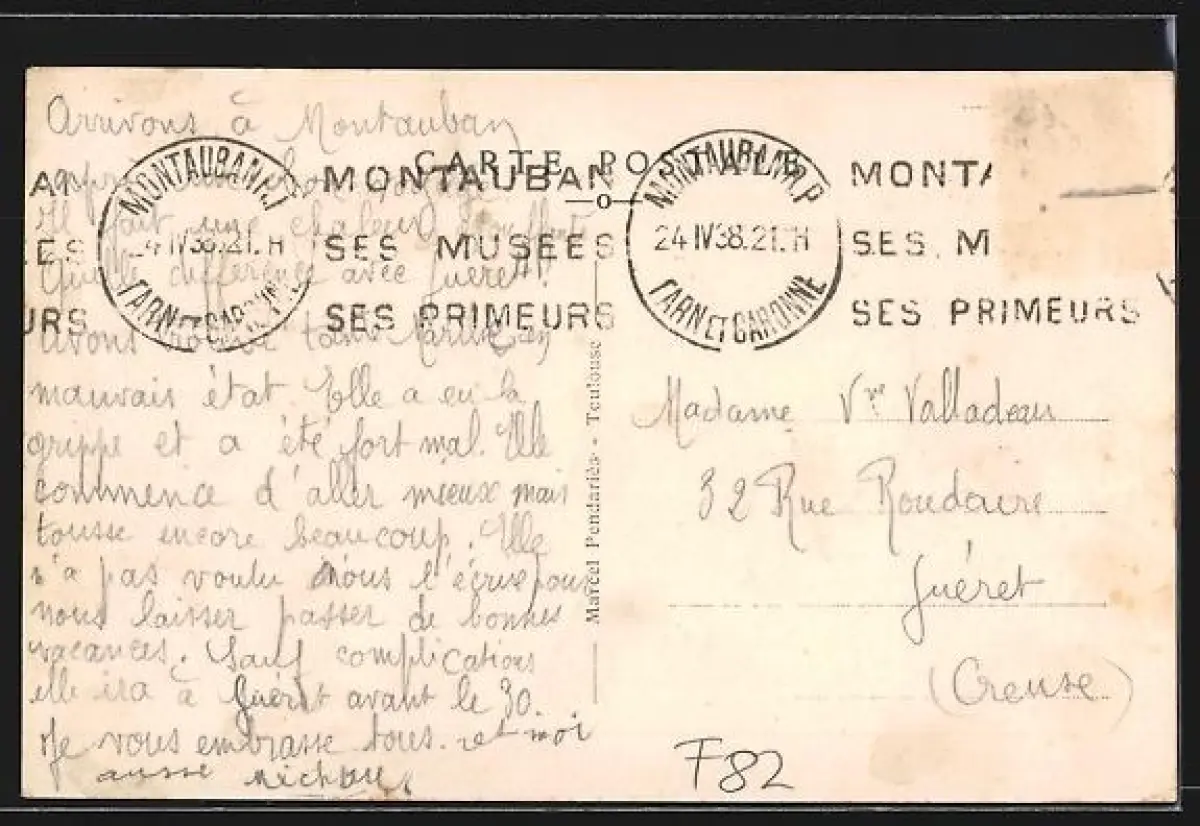 Arrivons à Montauban
Il fait une chaleur
Quelle différence avec Guéret!
Avons trouvé tante Marie en
mauvais état. Elle a eu la
grippe et a été fort mal. Elle
commence d'aller mieux mais
tousse encore beaucoup. Elle
n'a pas voulu nous l'écrire pour
nous laisser passer de bonnes
vacances. Sauf complications
elle ira à Guéret avant le 30.
Je vous embrasse tous. et moi
aussi
CARTE POSTALE
MONTAUBAN
TARN ET GARONNE
24 IV 38.21.H
MONTAUBAN
SES MUSÉES
SES PRIMEURS
MONTAUBAN
TARN ET GARONNE
24 IV 38.21.H
MONTA
SES M
SES PRIMEURS
ES
URS
Marcel Pendariès - Toulouse
Madame Vve Valladeau
32 Rue Roudaire
Guéret
(Creuse)
F82